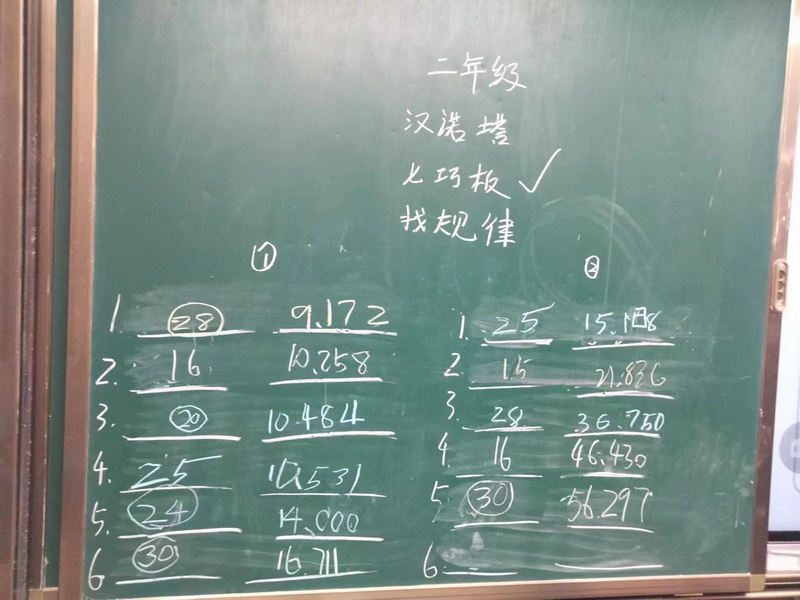 二年级
汉诺塔
七巧板 ✓
找规律
①
1 28 9.172
2. 16 10.258
3. 20 10.484
4. 25 10.531
5. 24 14.000
6 30 16.711
②
1. 25
2. 15 21.836
3. 28 36.750
4. 16 46.430
5. 30 56.297
6.